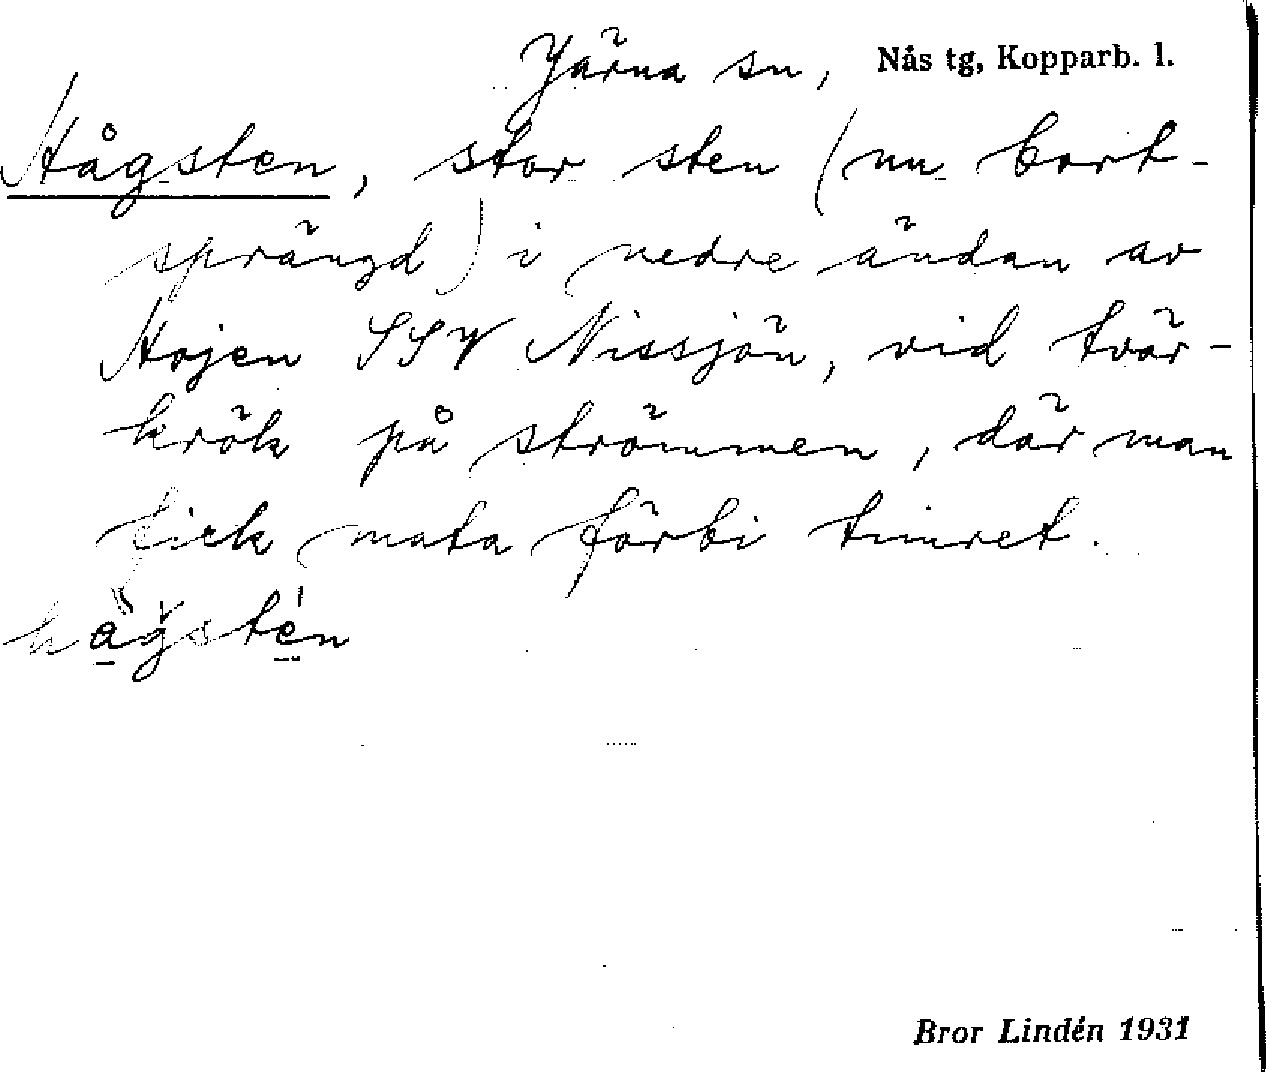 Järna sn, Nås tg, Kopparb. l.
Hågsten, stor sten (nu bort-
sprängd) i nedre ändan av
Hojen SSV Nissjön, vid tvär-
krök på strömmen, där man
fick mata förbi timret.
Bror Lindén 1931